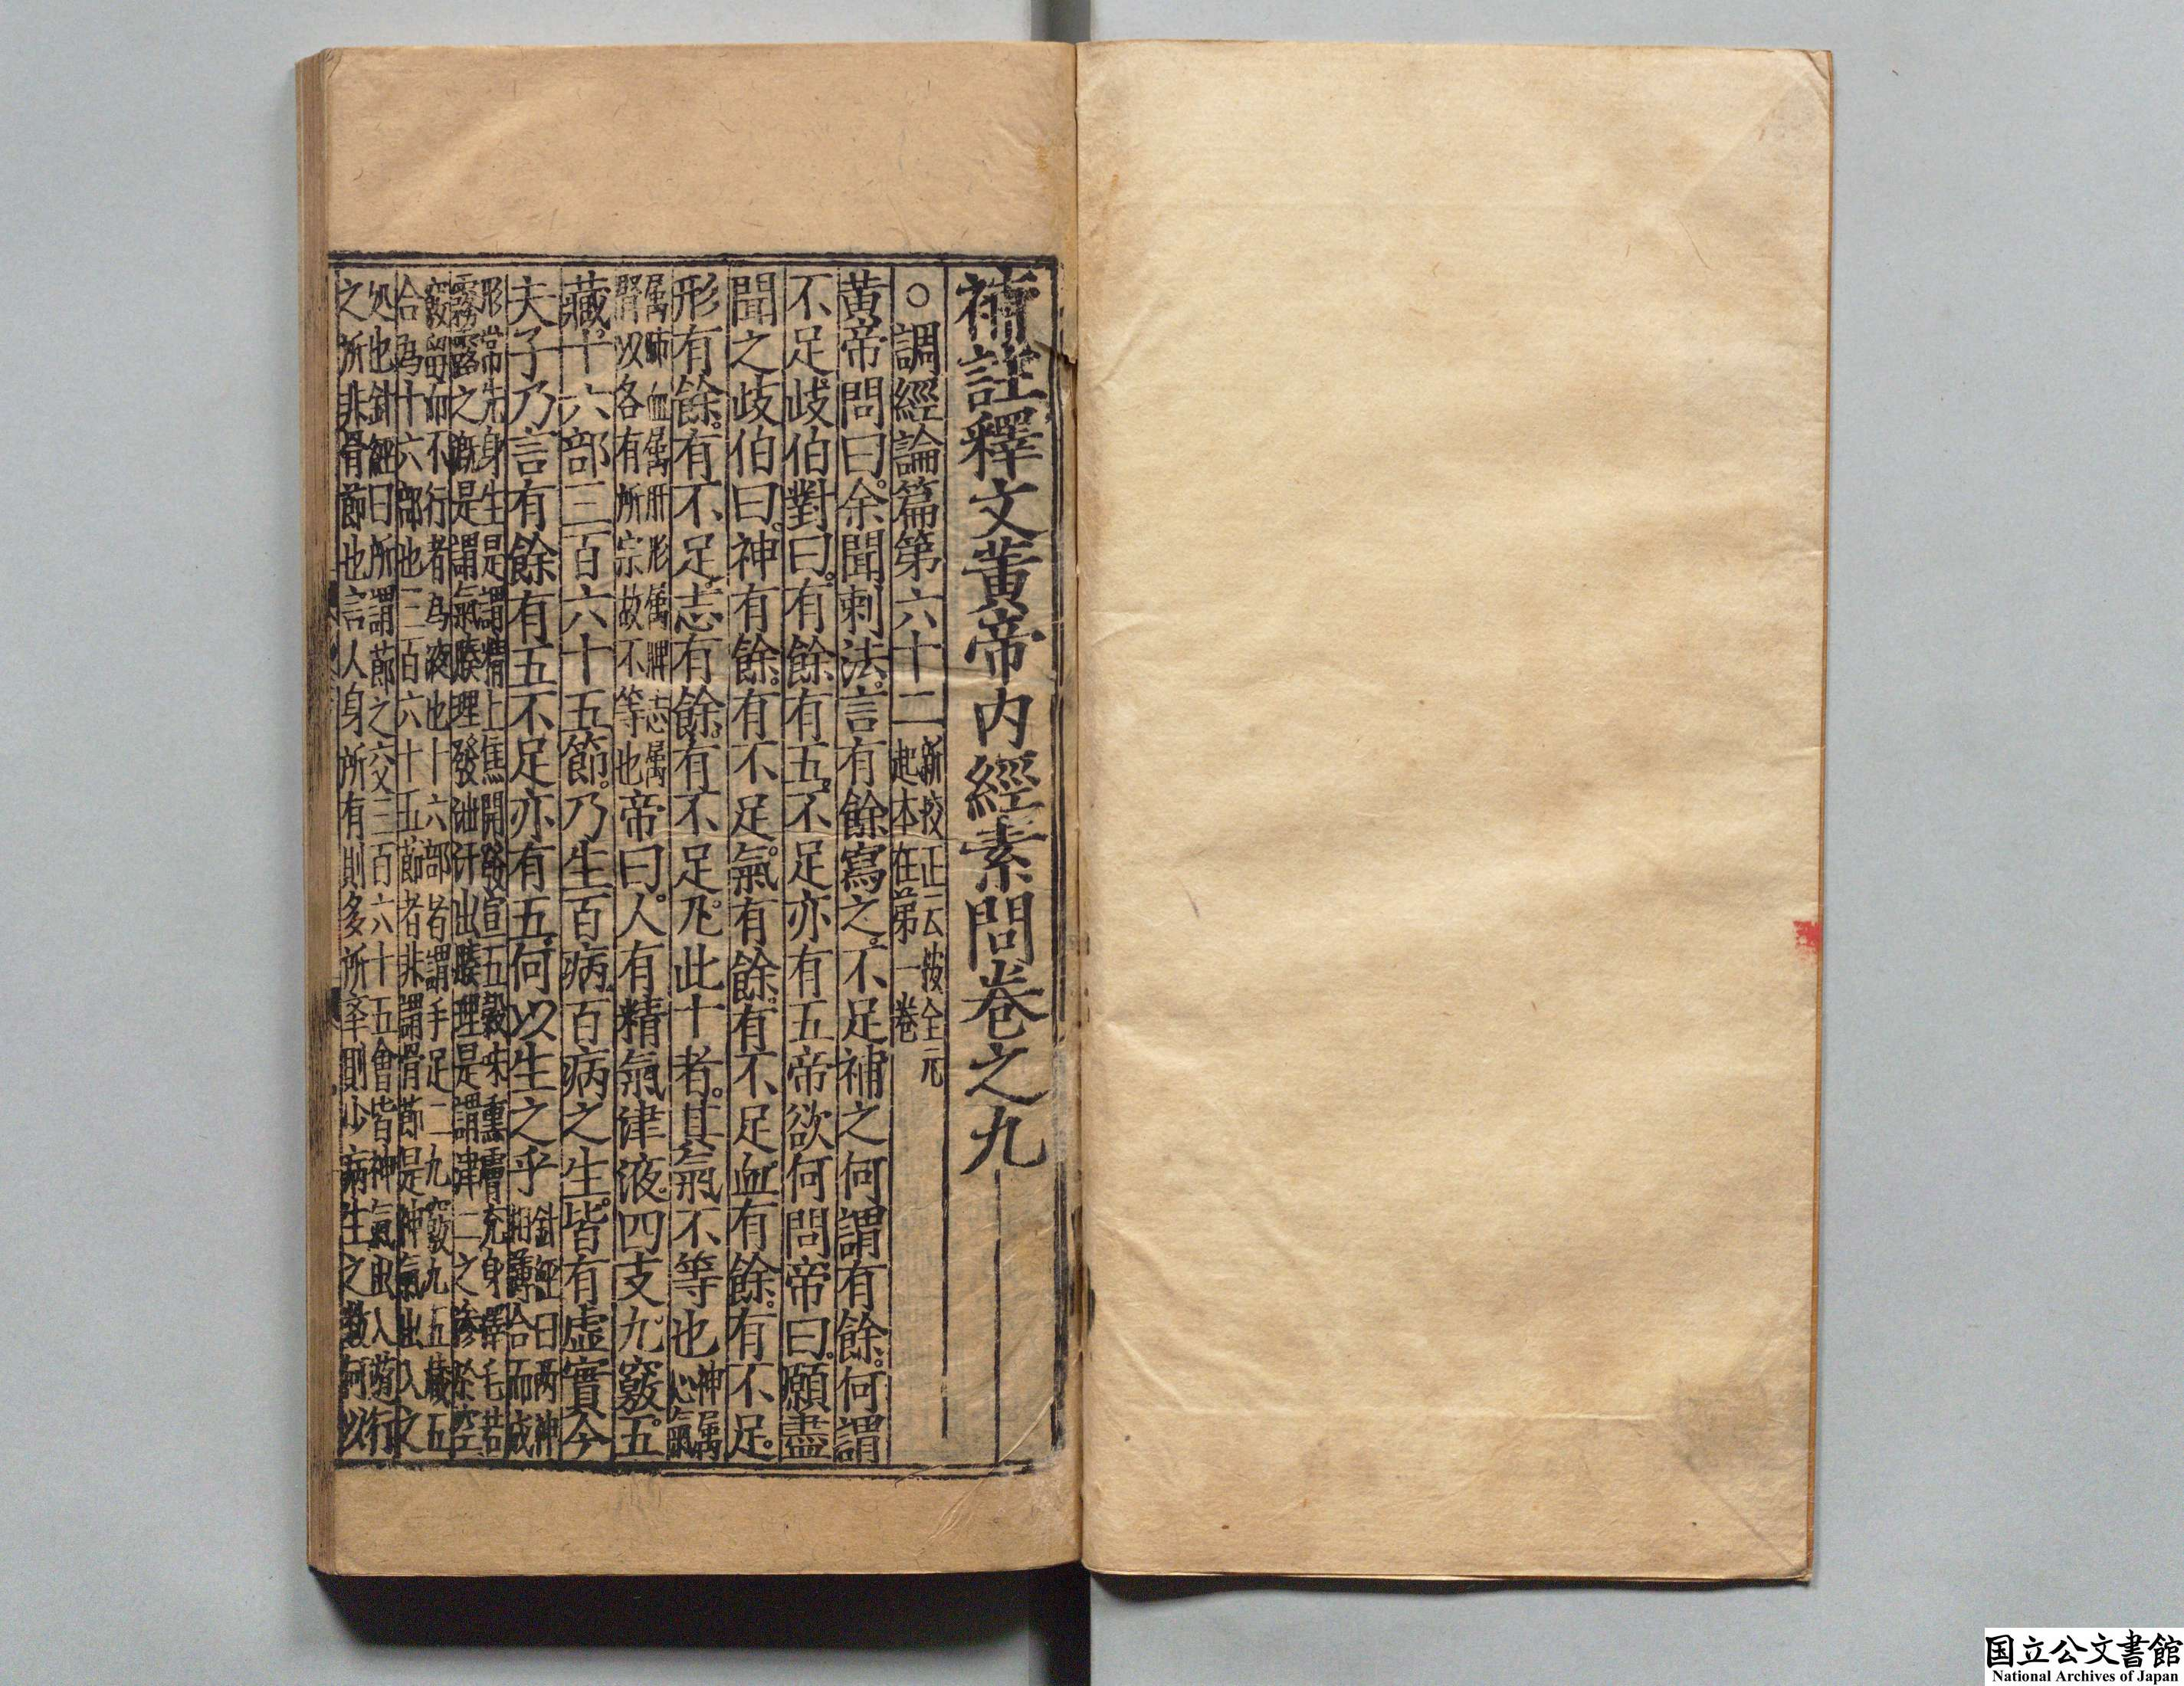 補註釋文黃帝内經素問卷之九
○調經論篇第六十二 新校正云按全元
起本在第一卷
黃帝問曰。余聞刺法。言有餘寫之。不足補之何謂有餘。何謂
不足。歧伯對曰。有餘有五。不足亦有五帝欲何問帝曰。願盡
聞之歧伯曰。神有餘。有不足。氣有餘。有不足血有餘。有不足。
形有餘。有不足。志有餘。有不足。凡此十者。其氣不等也 神属
心氣
属肺血属肝形属脾志属
腎以各有所宗故不等也
帝曰。人有精氣津液。四支。九竅。五
藏。十六部三百六十五節。乃生百病。百病之生。皆有虛實今
夫子乃言有餘有五不足亦有五。何以生之乎 針經曰两神
相薄合而成
形常先身生是謂精上焦開發宣五穀味熏膚充身澤毛若
霧露之溉是謂氣腠理發泄汗出腠理是謂津二之滲於空
竅留而不行者為液也十六部者謂手足二九竅九五藏五
合為十六部也三百六十五節者非謂骨節是神氣出入之
処也針經曰所謂節之交三百六十五會皆神氣出入遊行
之所非骨節也言人身所有則多所舉則少病生之數何以
国立公文書館
National Archives of Japan